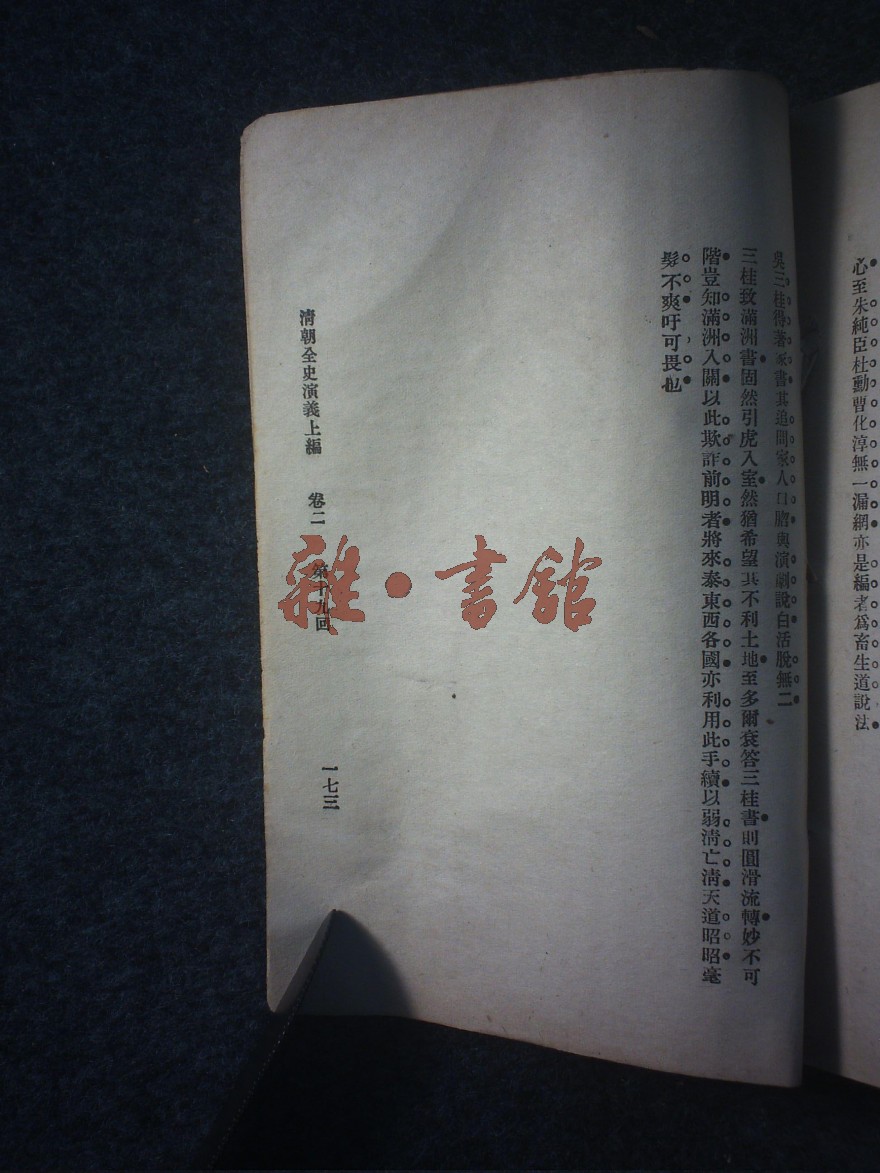 心至朱純臣杜勳曹化淳無一漏網亦是編者爲畜生道說法
吳三桂得著家書其追問家人口脗與演劇說白活脫無二
三桂致滿洲書固然引虎入室然猶希望其不利土地至多爾袞答三桂書則圓滑流轉妙不可
階豈知滿洲入關以此欺詐前明者將來泰東西各國亦利用此手續以弱淸亡淸天道昭昭毫
髮不爽吁可畏也
淸朝全史演義上編 卷二 第十九回 一七三
雜·書館